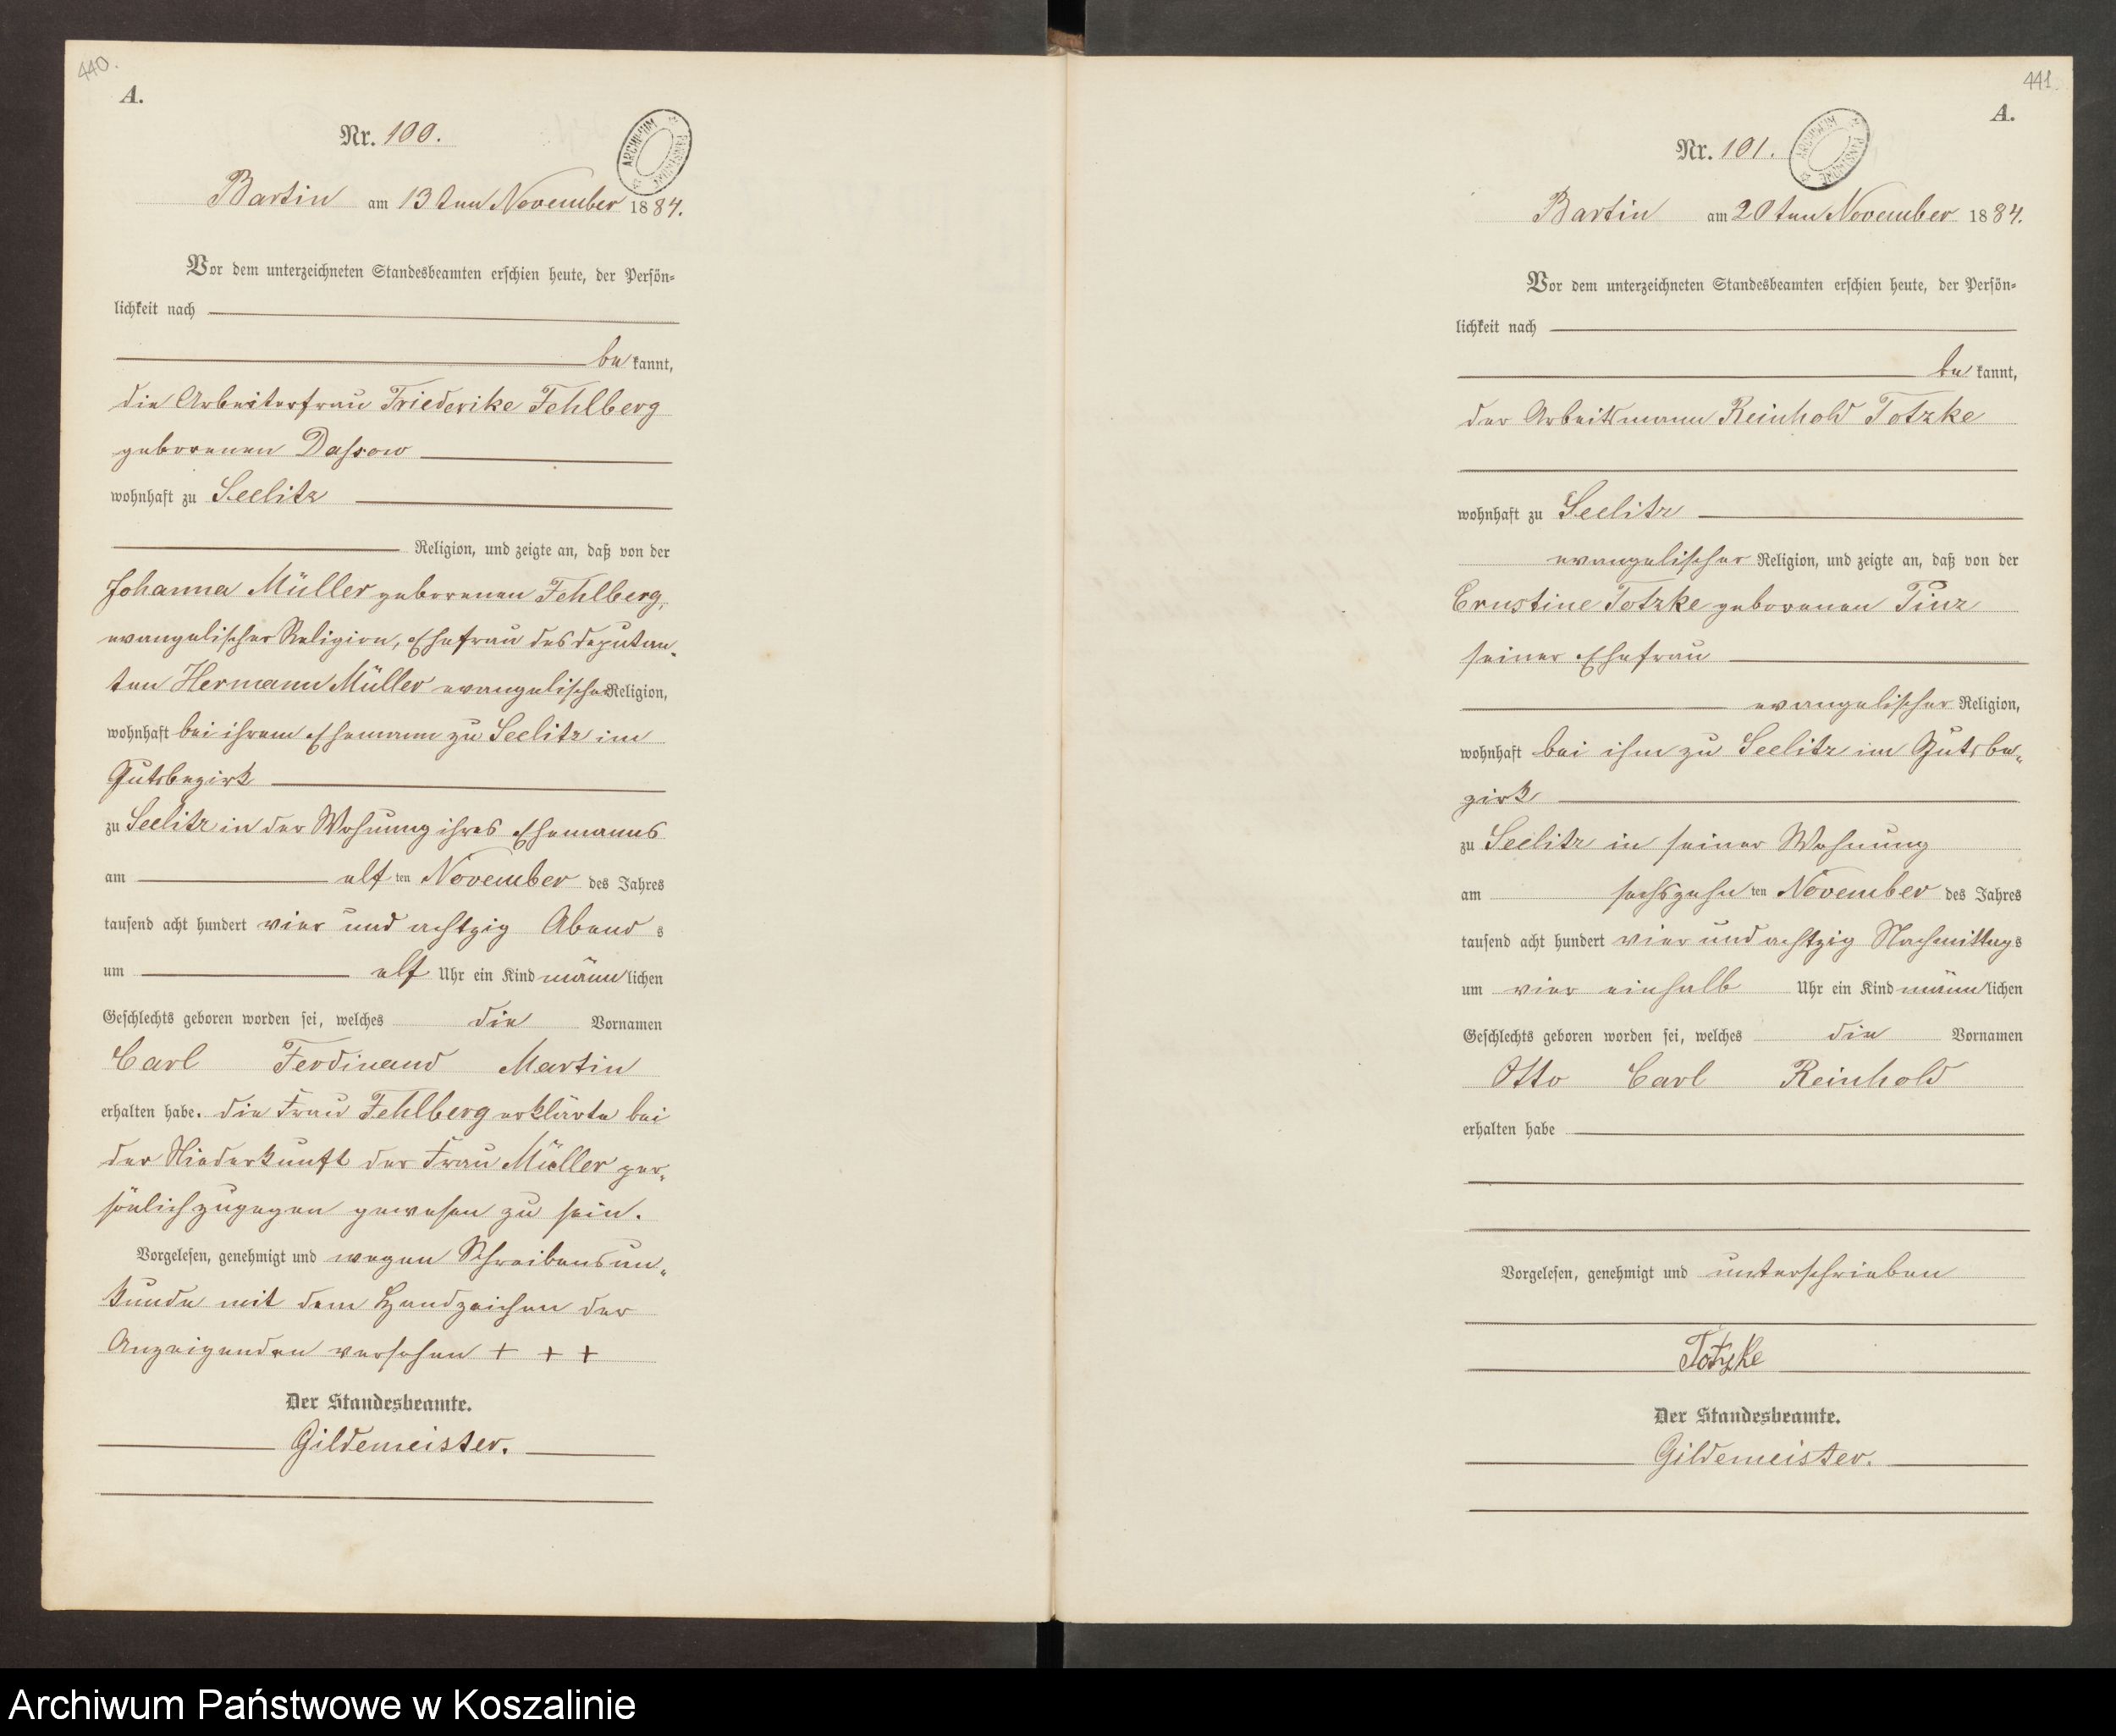 440.
A.
Nr. 100.
ARCHIWUM PAŃSTWOWE
Bartin am 13ten November 1884.
Vor dem unterzeichneten Standesbeamten erschien heute, der Persön-
lichkeit nach
bekannt,
die Arbeiterfrau Friederike Fehlberg
geborenen Dassow
wohnhaft zu Seelitz
Religion, und zeigte an, daß von der
Johanna Müller geborenen Fehlberg,
evangelischer Religion, Ehefrau des Deputan-
ten Hermann Müller evangelischer Religion,
wohnhaft bei ihrem Ehemann zu Seelitz im
Gutsbezirk
zu Seelitz in der Wohnung ihres Ehemanns
am elften November des Jahres
tausend acht hundert vier und achtzig Abends
um elf Uhr ein Kind männlichen
Geschlechts geboren worden sei, welches die Vornamen
Carl Ferdinand Martin
erhalten habe. Die Frau Fehlberg erklärte bei
der Niederkunft der Frau Müller per-
sönlich zugegen gewesen zu sein.
Vorgelesen, genehmigt und wegen Schreibensun-
kunde mit dem Handzeichen der
Anzeigenden versehen + + +
Der Standesbeamte.
Gildemeister.
441.
A.
Nr. 101.
ARCHIWUM PAŃSTWOWE
Bartin am 20ten November 1884.
Vor dem unterzeichneten Standesbeamten erschien heute, der Persön-
lichkeit nach
bekannt,
der Arbeitsmann Reinhold Totzke
wohnhaft zu Seelitz
evangelischer Religion, und zeigte an, daß von der
Ernstine Totzke geborenen Pinz
seiner Ehefrau
evangelischer Religion,
wohnhaft bei ihm zu Seelitz im Gutsbe-
zirk
zu Seelitz in seiner Wohnung
am sechszehnten November des Jahres
tausend acht hundert vier und achtzig Nachmittags
um vier einhalb Uhr ein Kind männlichen
Geschlechts geboren worden sei, welches die Vornamen
Otto Carl Reinhold
erhalten habe
Vorgelesen, genehmigt und unterschrieben
Totzke
Der Standesbeamte.
Gildemeister.
Archiwum Państwowe w Koszalinie